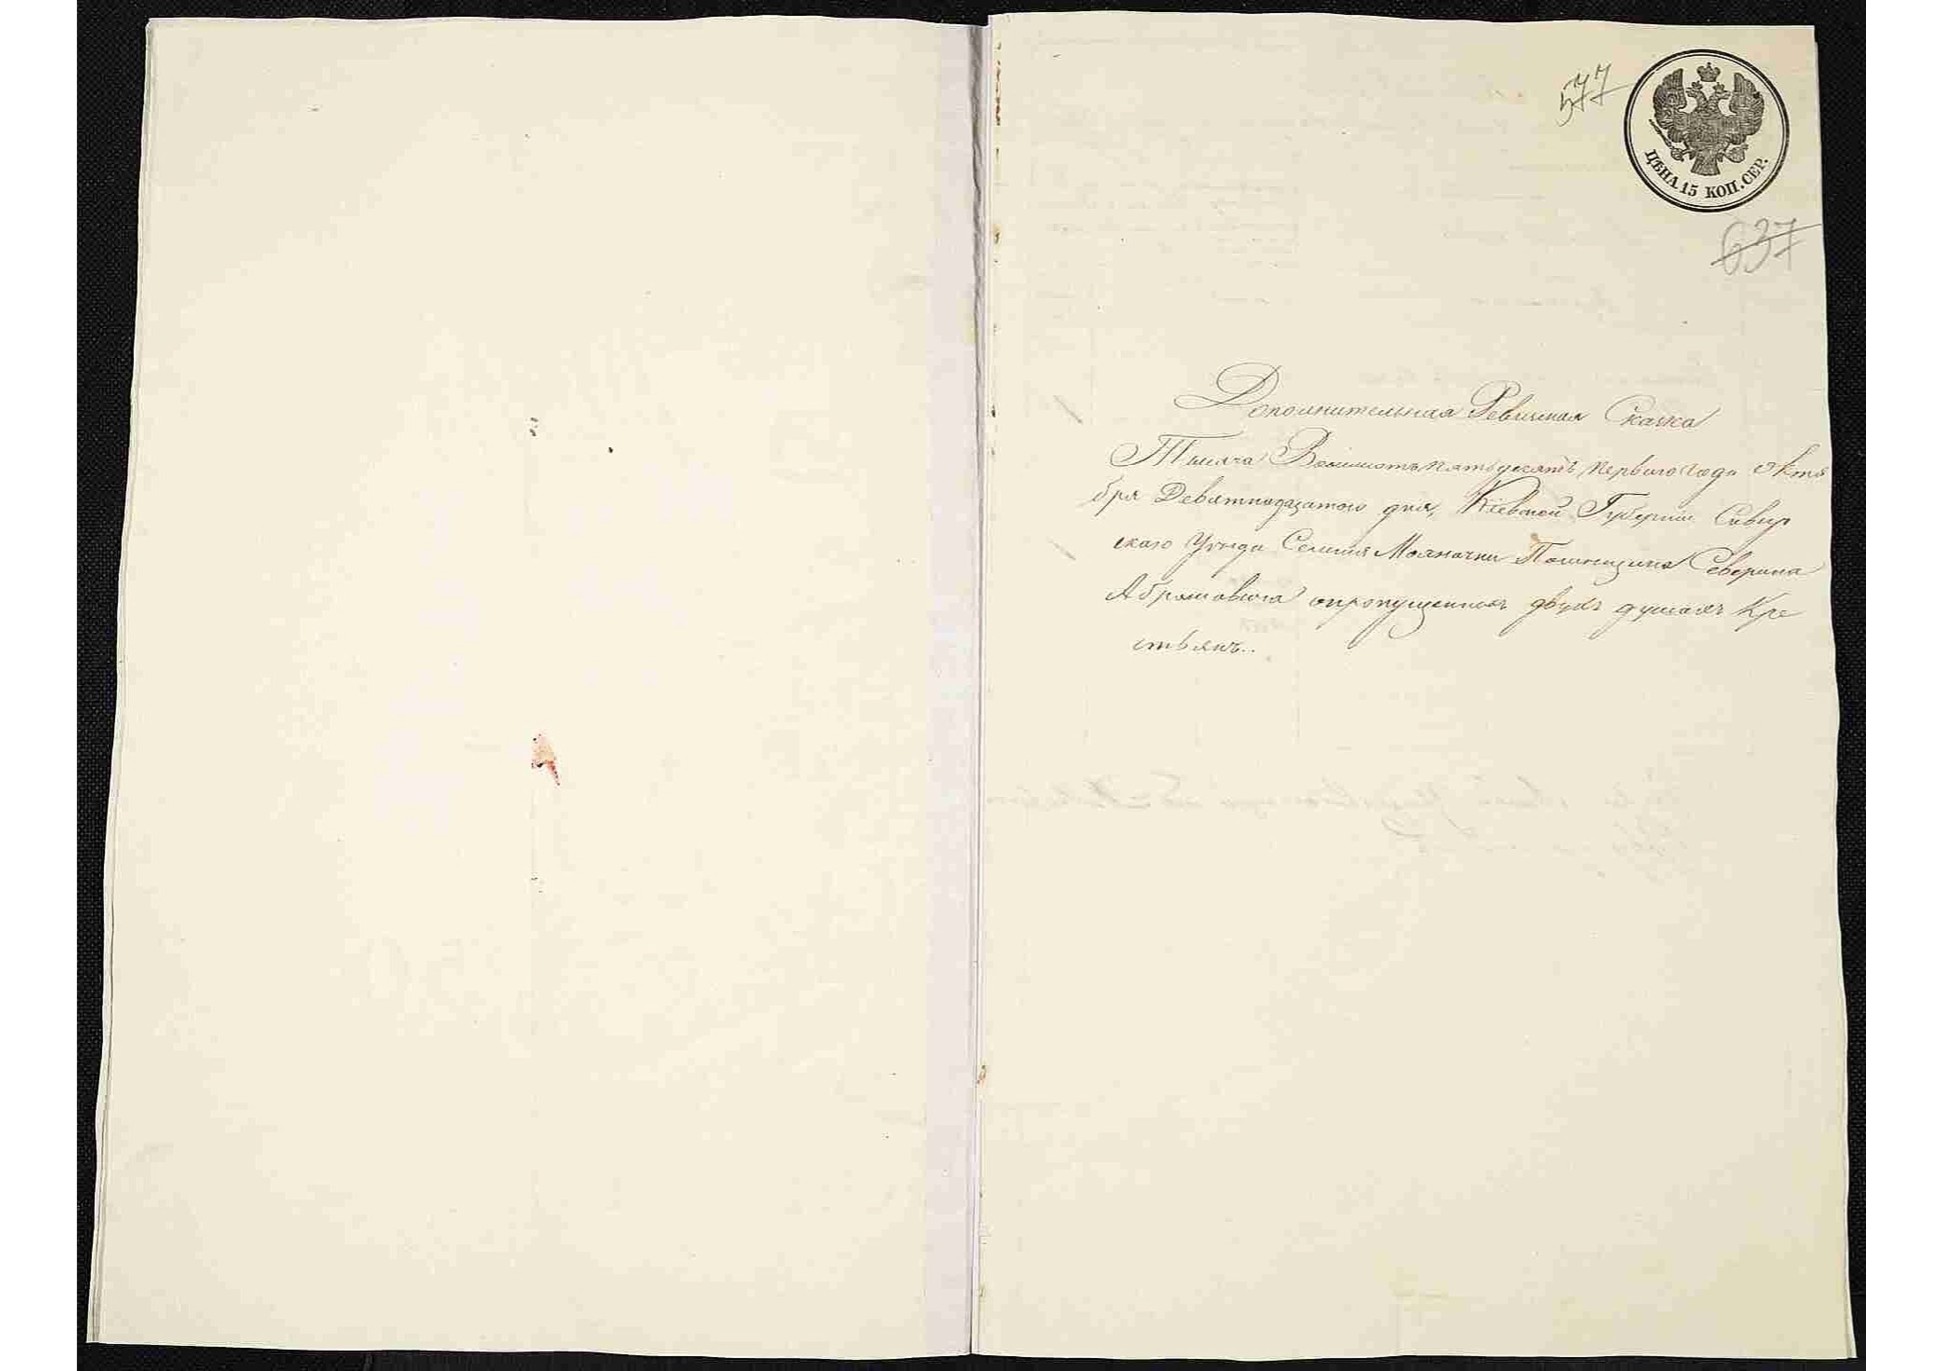 577
ЦѢНА 15 КОП. СЕР.
637
Дополнительная Ревизская Сказка
Тысяча Восемьсотъ пятьдесятъ первого года Октя
бря Девятнадцатого дня, Кіевской Губерніи Сквир
скаго Уѣзда Селенія Молчановки Помѣщика Северина
Абрамовича опропущенныхъ двухъ душахъ Кре
стьянъ..